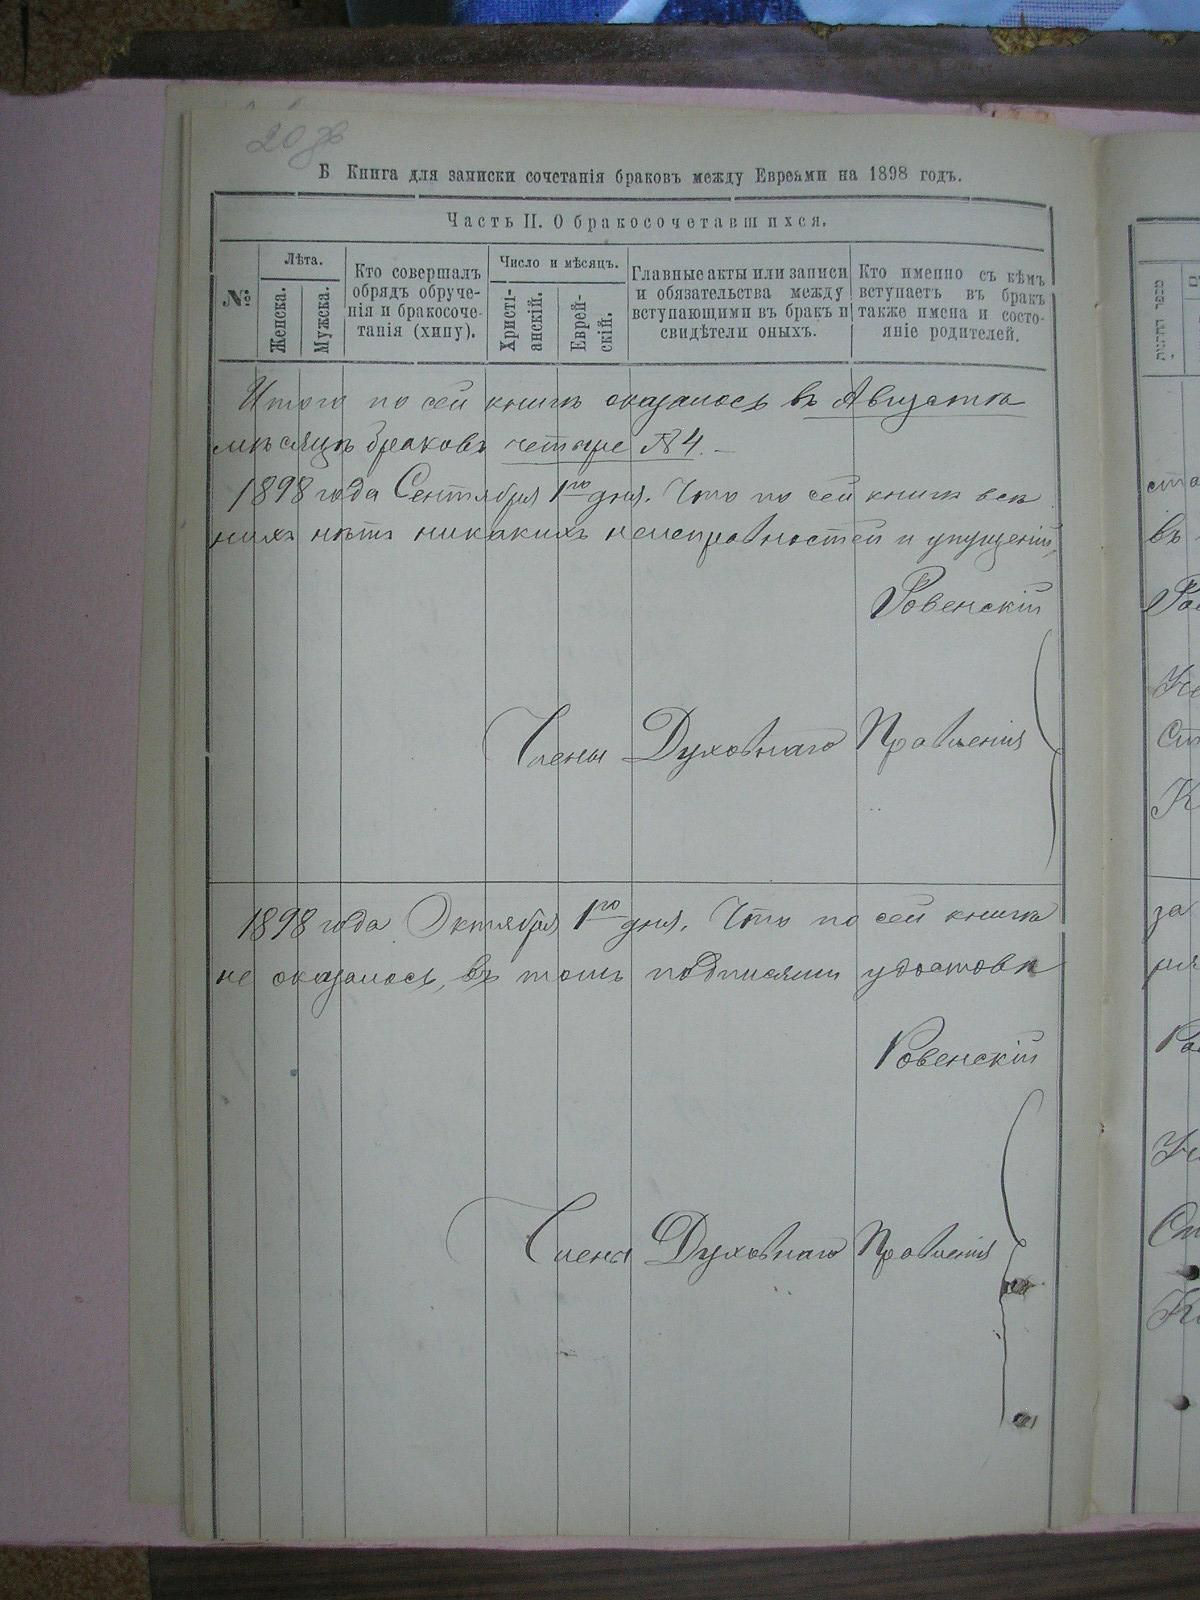 Б Книга для записки сочетанія браковъ между Евреями на 1898 годъ.
Часть II. О бракосочетавшихся.
№:
Лѣта.
Женска.
Мужска.
Кто совершалъ
обрядъ обруче-
нія и бракосоче-
танія (хипу).
Число и мѣсяцъ.
Христі-
анскій.
Еврей-
скій.
Главные акты или записи
и обязательства между
вступающими въ бракъ и
свидѣтели оныхъ.
Кто именно съ кѣмъ
вступаетъ въ бракъ
также имена и состо-
яніе родителей.
Итого по сей книгѣ оказалось въ Августѣ
мѣсяцѣ браковъ четыре № 4. –
1898 года Сентября 1го дня. Что по сей книгѣ
нихъ нѣтъ никакихъ неисправностей и упущеній,
Ровенскій
Члены Духовнаго Правленія
1898 года Октября 1го дня. Что по сей книгѣ
не оказалось, въ томъ подписями удостовѣ
Ровенскій
Члены Духовнаго Правленія
въ
за